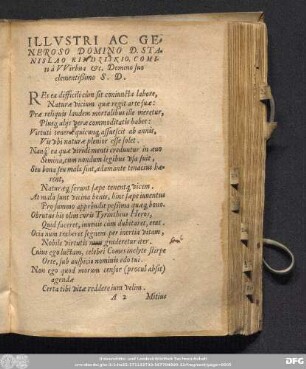 ILLVSTRI AC GE-
NEROSO DOMINO D. STA-
NISLAO KINDZISKIO, COMI-
ti à VVirbne &c. Domino suo
clementissimo S. D.
RES ex difficili
coniuncta labore,
Naturæ vicium quæ regit arte suæ:
Præ reliquis laudem mortalibus illa meretur,
Plus atq; veræ commoditatis habet:
Virtuti teneræ quicunq; assuescit ab annis,
Vir ubi natura plenior esse solet.
Nanq; ea quæ viridi menti creduntur in æuo
Semina, cum nondum legibus vsa fuit,
Seu bona seu mala sint, adamante tenacius hæ-
rent,
Naturæq; ferunt sæpe tenentq; vicem.
At mala sunt vicina bonis, hinc sæpe inuentus
Pro summo apprendit pessima quæq; bono.
Obrutus his olim curis Tyrinthius Heros,
Quid faceret, iuuenis cum dubitaret, erat.
Ocia num traheret segnem per inertia vitam,
Nobile virtutis num graderetur iter.
Cuius ego luctam, celebri Comes inclyte stirpe
Orte, sub auspicio nominis edo tui.
Non ego quod morum censor (procul absit)
agendæ
Certa tibi vitæ reddere iura velim.
A 2 Mitius